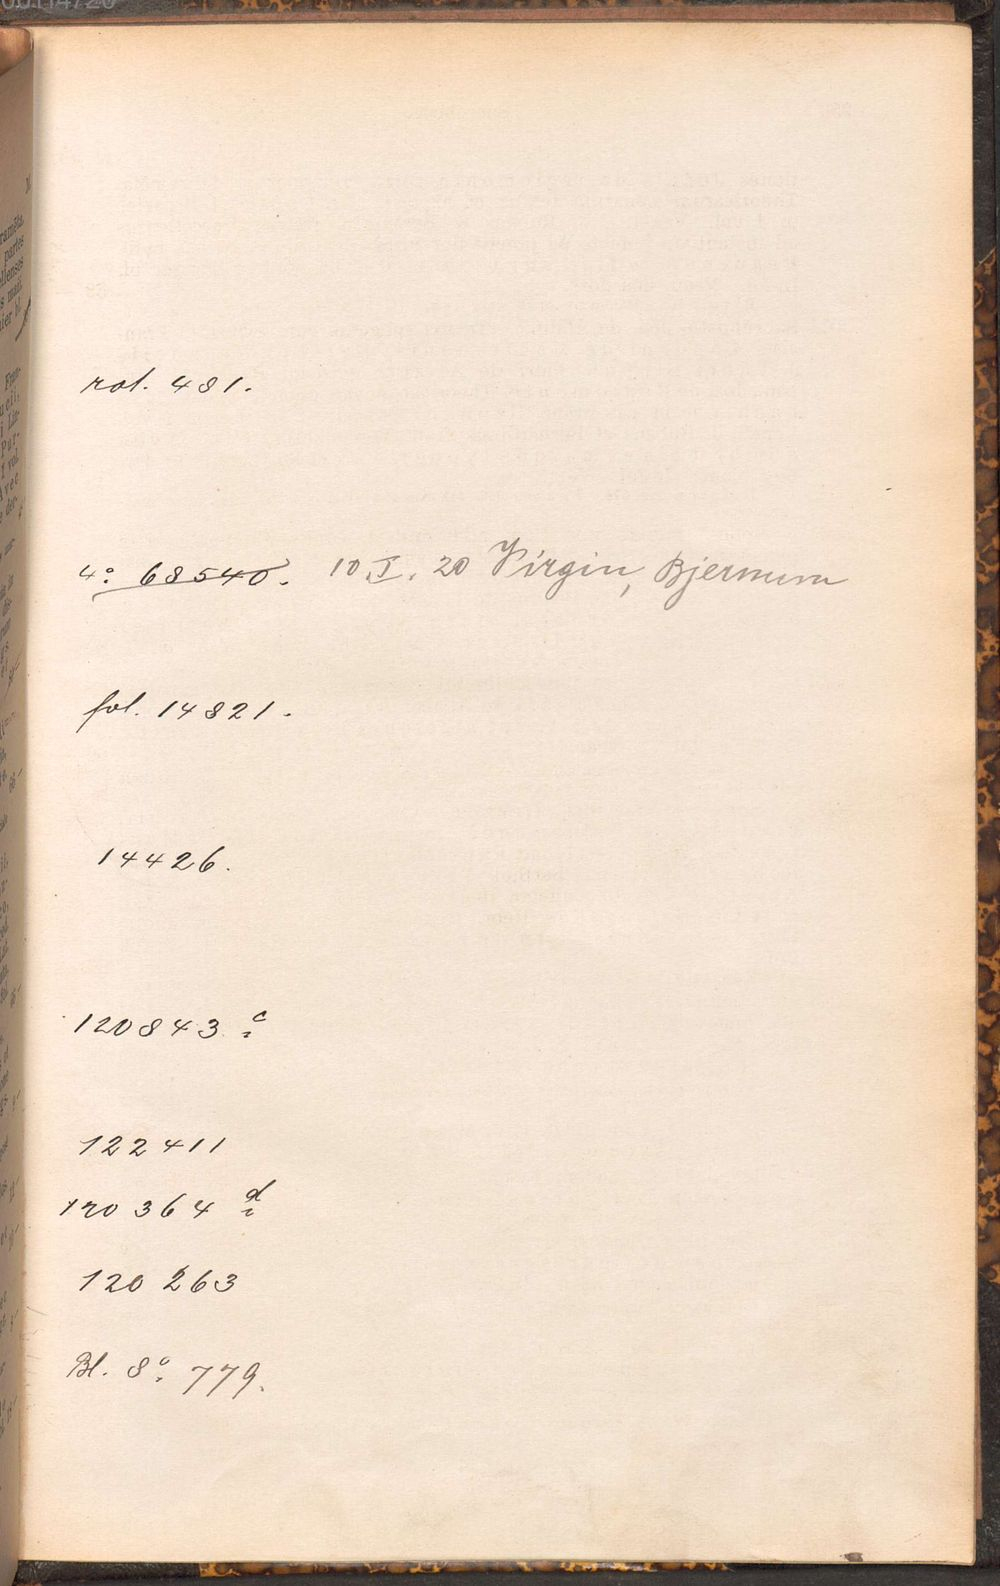 rol. 481.
4º 68540. 10 I. 20 Virgin, Bjernum
fol. 14821.
14426.
120843 c
122411
120364 d
120263
Bl. 8º 779.